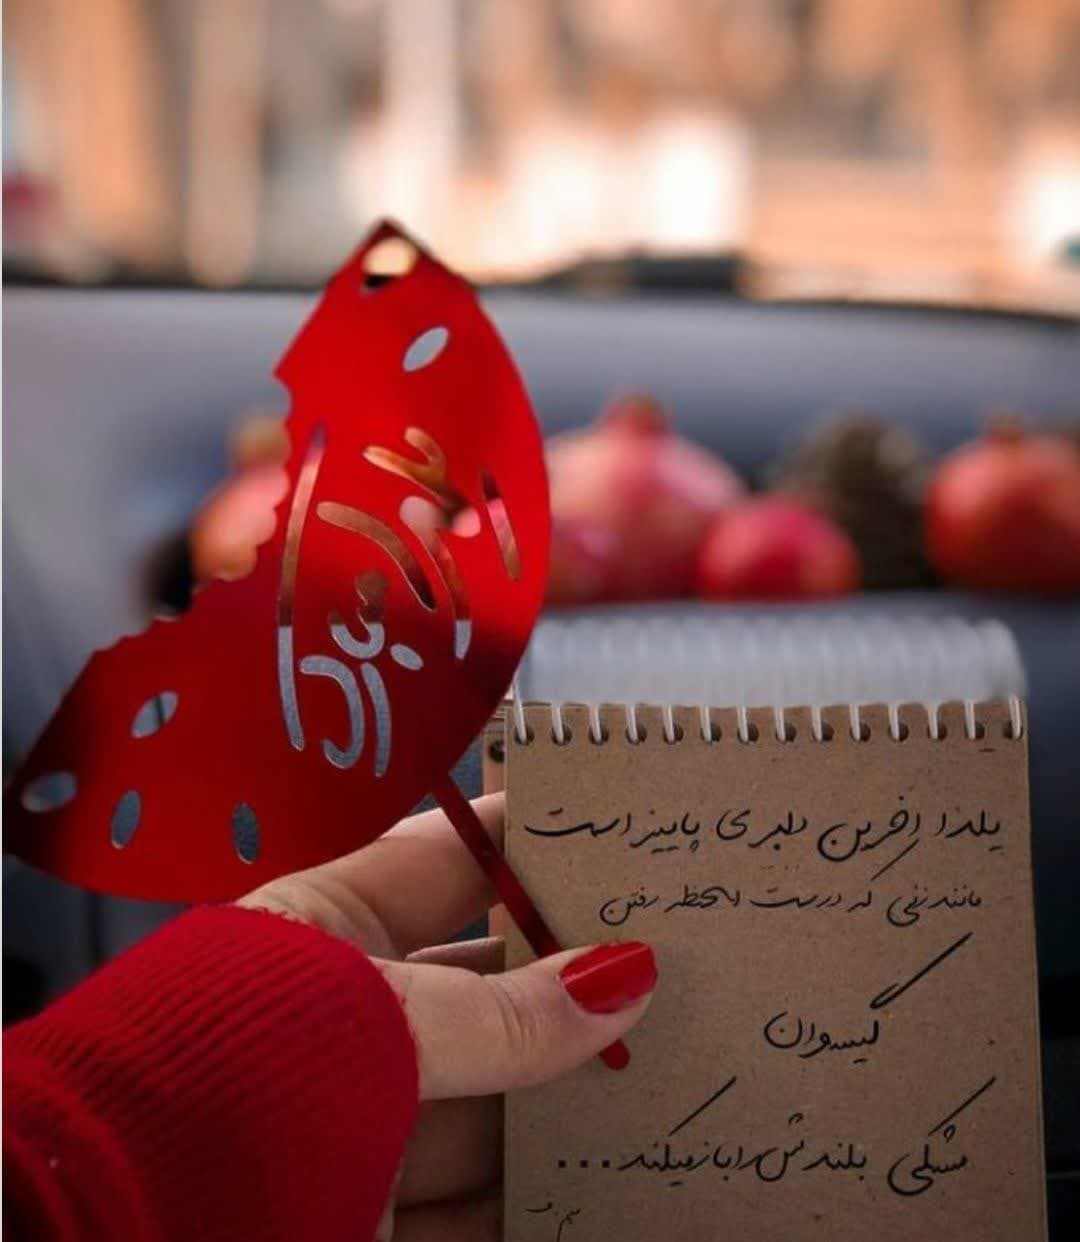 یلدا آخرین دلبری پاییز است
مانند زنی که درست لحظه رفتن
گیسوان
مشکی بلندش را باز میکند...